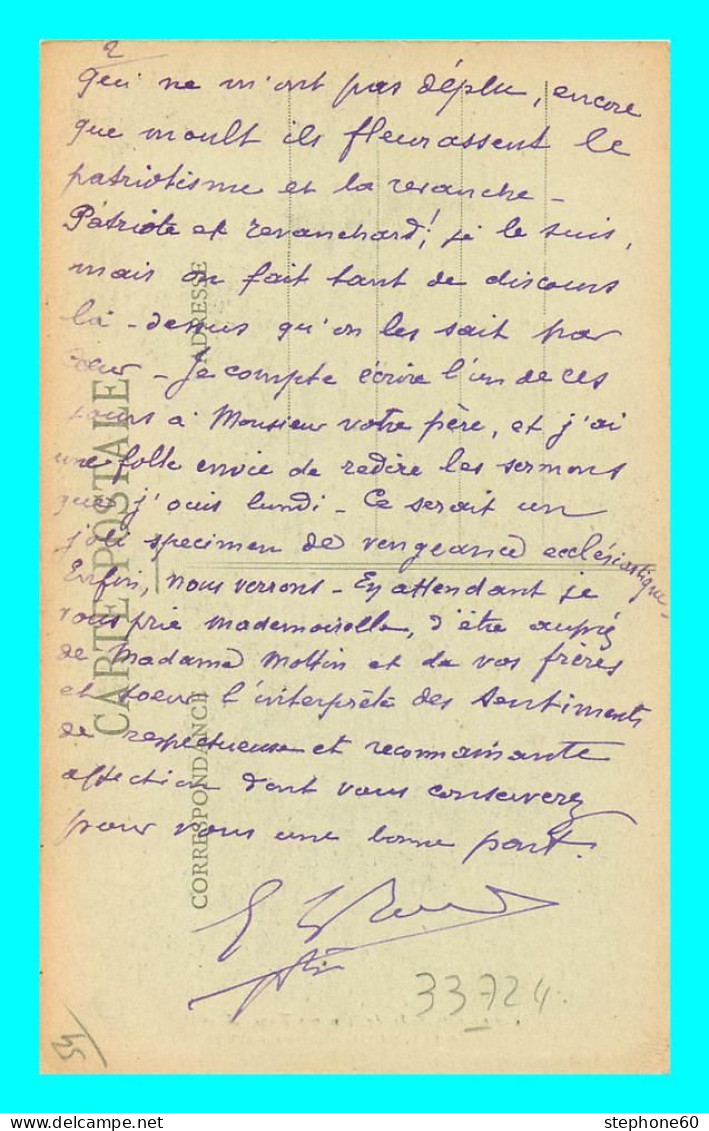 2
qui ne m'ont pas déplu, encore
que moult ils fleurassent le
patriotisme et la revanche -
Patriote et revanchard! je le suis,
mais on fait tant de discours
là-dessus qu'on les sait par
coeur - Je compte écrire l'un de ces
jours à Monsieur votre père, et j'ai
une folle envie de redire les sermons
que j'ouis lundi - Ce serait un
joli specimen de vengeance ecclésiastique -
Enfin, nous verrons - En attendant je
vous prie Mademoiselle, d'être auprès
de Madame Mottin et de vos frères
et soeur l'interprète des sentiments
de respectueuse et reconnaissante
affection dont vous conserverez
pour vous une bonne part.
33724
CARTE POSTALE
CORRESPONDANCE
ADRESSE
stephone60